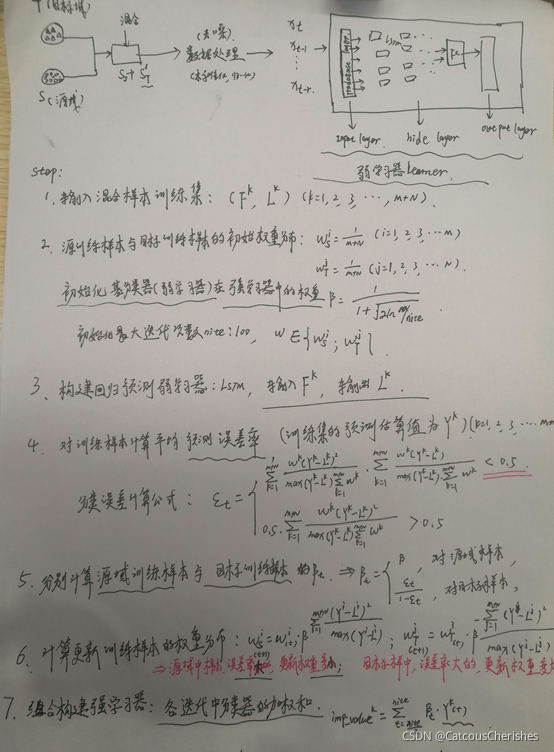 T(目标域)
混合
S(源域)
S+S'T
(去噪)
数据处理
(标准化, 归一化)
xt
xt-1
xt-r
LSTM
Fc
Input layer
hide layer
output layer
弱学习器 Learner
step:
1. 输入混合样本训练集: (F^k, L^k) (k=1, 2, 3 ⋯, m+N)
2. 源训练样本与目标训练样本的初始权重分布: w_S^i = 1/(m+N) (i=1, 2, 3 ⋯ m)
w_T^j = 1/(m+N) (j=1, 2, 3 ⋯ N).
初始化基学习器(弱学习器)在强学习器中的权重 β = 1/(1+√(2ln m/nite))
初始化最大迭代次数nite: 100, w∈{w_S^i ; w_T^j}.
3. 构建回归预测弱学习器: LSTM, 输入 F^k, 输出 L^k.
4. 对训练样本计算平均预测误差率 (训练集的预测估算值为 Y^k) (k=1, 2, 3, ⋯ m+N
误差计算公式: εt = { Σ_{k=1}^{m+N} w^k(Y^k-L^k)²/(max(Y^k-L^k)Σ_{k=1}^{m+N} w^k) , Σ_{k=1}^{m+N} w^k(Y^k-L^k)/(max(Y^k-L^k)·Σ w^k) < 0.5
0.5, Σ_{k=1}^{m+N} w^k(Y^k-L^k)²/(max(Y^k-L^k)Σ_{k=1}^{m+N} w^k) > 0.5
5. 分别计算源域训练样本与目标训练样本的βt. ⇒ βt = { β, 对源域样本,
εt/(1-εt), 对目标样本,
6. 计算更新训练样本的权重分布: w_S^i(t+1) = w_S^i(t)·β^{Σ(Y^i-L^i)²/max(Y^i-L^i)} ; w_T^j(t+1) = w_T^j(t)·β^{-Σ(Y^j-L^j)²/max(Y^j-L^j)}
⇒ 源域中样本, 误差率大, 更新权重变小; 目标样中, 误差率大的, 更新权重变大
7. 组合构建强学习器: 各迭代中学习器的加权和. imp_value^k = Σ_{t=nite/2}^{nite} βt·Y^k(t)
CSDN @CatcousCherishes